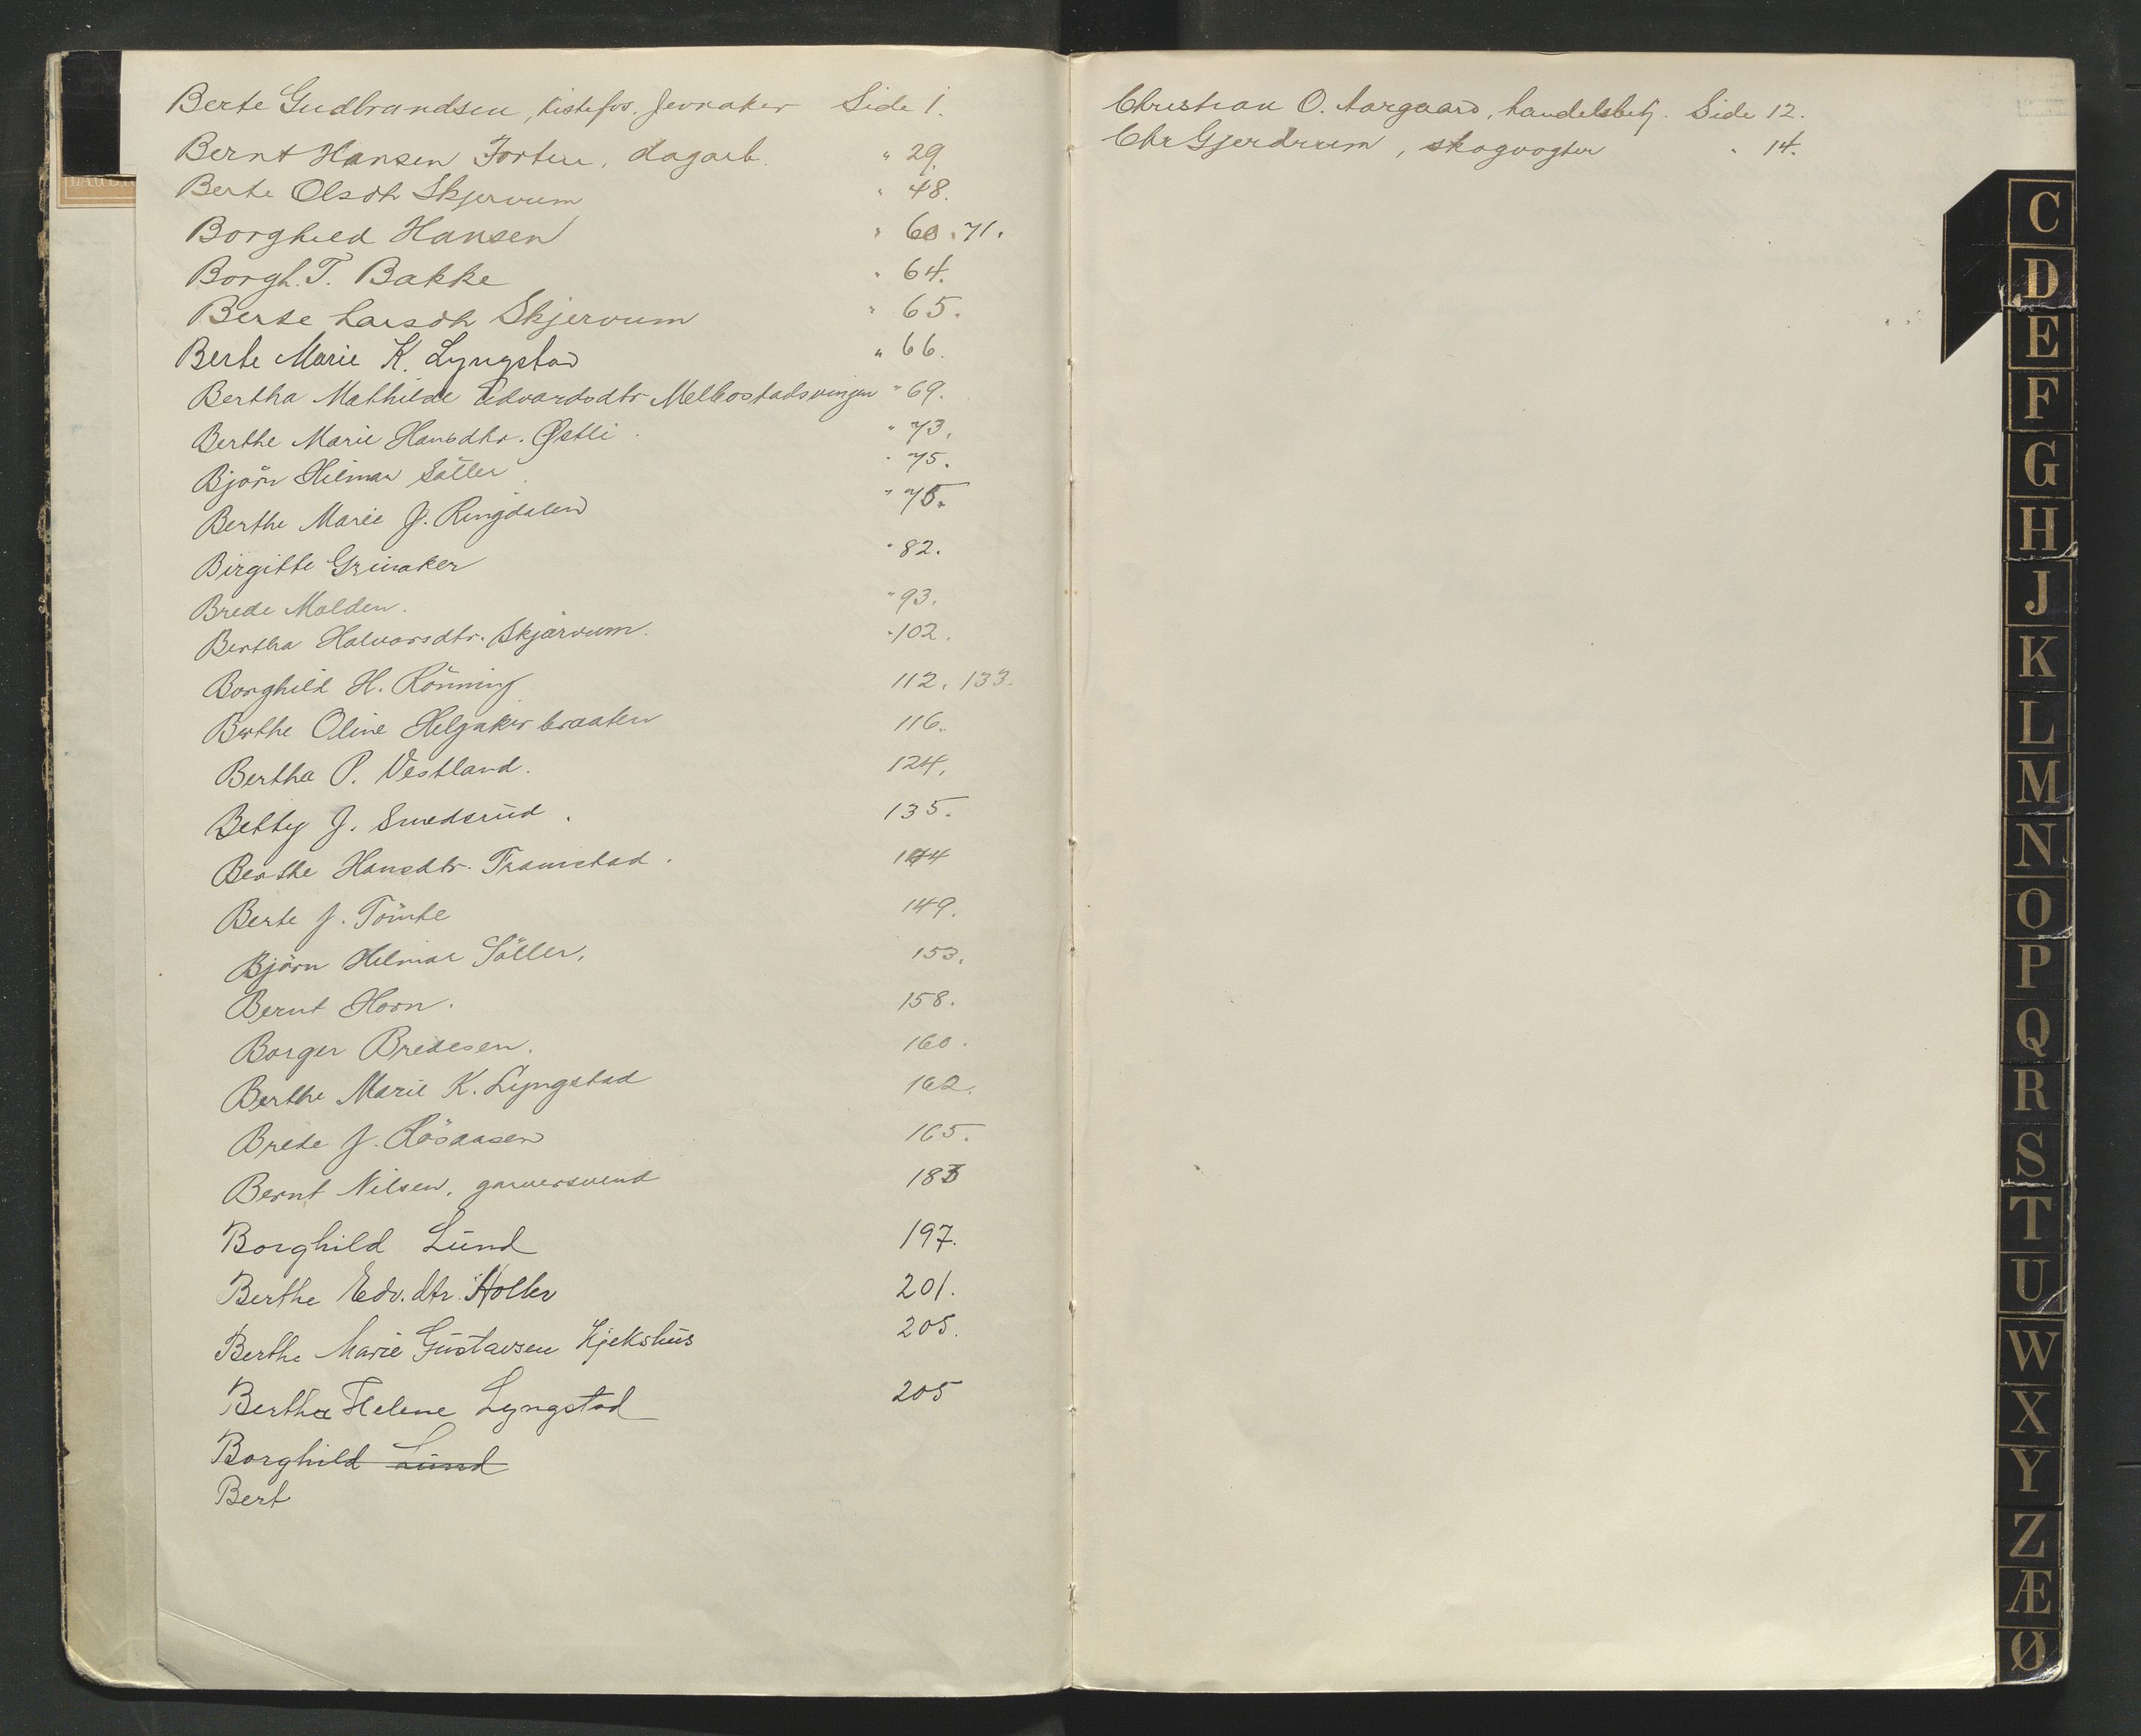 Berte Gudbrandsen, Kistefos. Jevnaker Side 1.
Bernt Hansen Forten, dagarb. " 29.
Berte Olsdtr Skjervum " 48.
Borghild Hansen " 60. 71.
Borgh. T. Bakke " 64.
Berte Larsdtr Skjervum " 65.
Berte Marie K. Lyngstad " 66.
Bertha Mathilde Edvardsdtr Melbostadsvingen " 69.
Berthe Marie Hansdtr. Østli " 73.
Björn Hilmar Söller " 75.
Berthe Marie J. Ringdalen " 75.
Birgitte Grinaker " 82.
Brede Molden. " 93.
Bertha Halvorsdtr. Skjærvum. " 102.
Borghild H. Rönning 112. 133.
Berthe Oline Helgaker braaten 116.
Bertha P. Vestland. 124.
Betty J. Smedsrud. 135.
Berthe Hansdtr. Framstad. 144
Berte J. Tömte 149.
Björn Hilmar Söller. 153.
Bernt Horn. 158.
Borger Bredesen. 160.
Berthe Marie K. Lyngstad 162.
Brede J. Rösaasen 165.
Bernt Nilsen, garversvend 183
Borghild Lund 197.
Berthe Edv. dtr. Holter 201.
Berthe Marie Gustavsen Kjekshus 205.
Bertha Helene Lyngstad 205
Borghild Lund
Bert
Christian O. Aargaard, handelsbetj. Side 12.
Chr Gjerdrum, skogvogter " 14.
C
D
E
F
G
H
J
K
L
M
N
O
P
Q
R
S
T
U
W
X
Y
Z
Æ
Ø